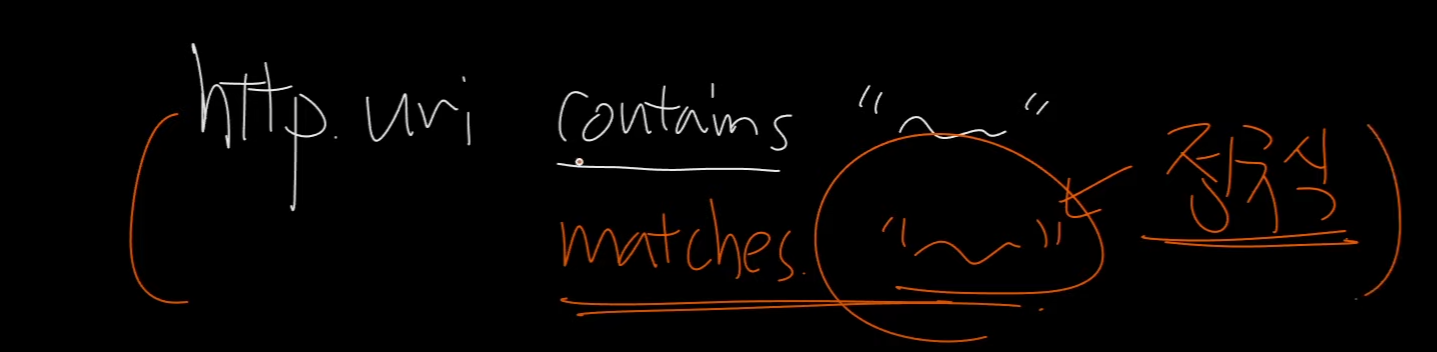 http.uri contains "~"
matches. "~" 정규식